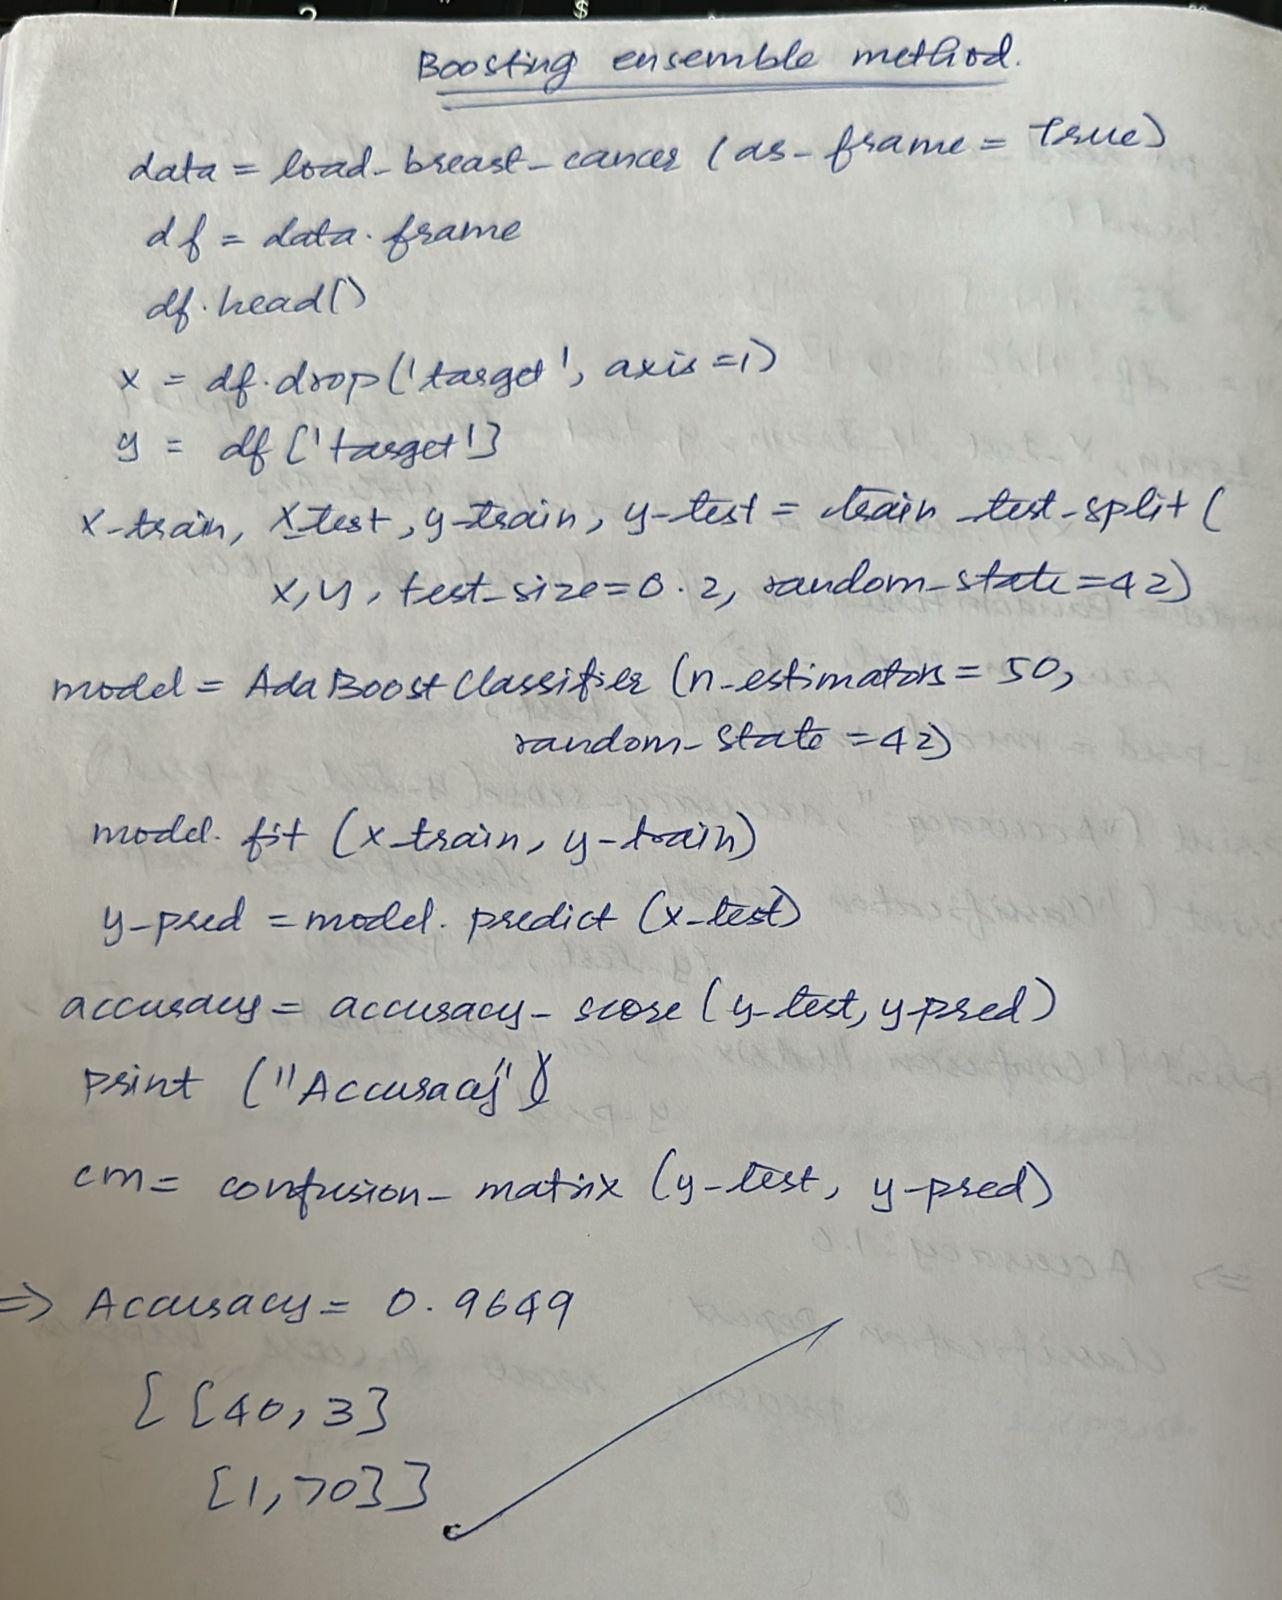 Boosting ensemble method.
data = load_breast_cancer (as_frame = True)
df = data.frame
df.head()
x = df.drop('target', axis=1)
y = df['target']
x_train, x_test, y_train, y_test = train_test_split(
x, y, test_size=0.2, random_state=42)
model = AdaBoostClassifier (n_estimators = 50,
random_state = 42)
model.fit (x_train, y_train)
y_pred = model.predict (x_test)
accuracy = accuracy_score (y_test, y_pred)
print ("Accuracy")
cm = confusion_matrix (y_test, y_pred)
=> Accuracy = 0.9649
[[40, 3]
[1, 70]]